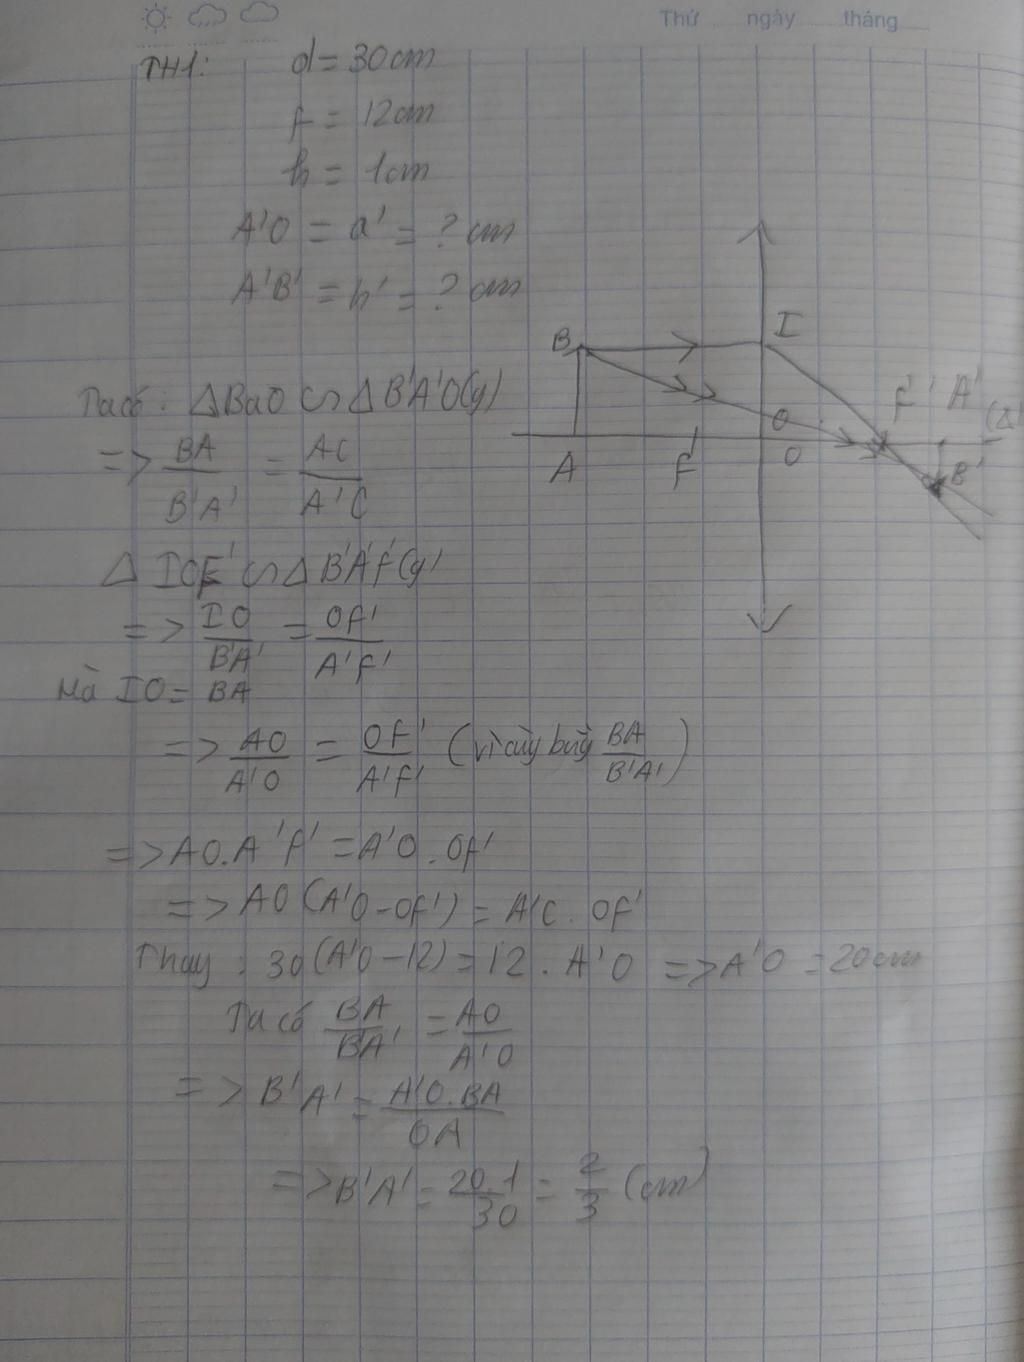 Thứ ngày tháng
TH1: d = 30cm
f = 12cm
h = 1cm
A'O = d' = ? cm
A'B' = h' = ? cm
B I
F' A' (Δ
O
A F O B'
Ta có: ΔBaO ∽ ΔB'A'O(g)
=> BA/B'A' = AC/A'C
Δ IOF' ∽ Δ B'A'F'(g)
=> IO/B'A' = OF'/A'F'
Mà IO = BA
=> AO/A'O = OF'/A'F' (vì cùng bằng BA/B'A')
=> AO.A'F' = A'O.OF'
=> AO(A'O-OF') = A'C.OF'
Thay: 30(A'O-12) = 12.A'O => A'O = 20cm
Ta có BA/BA' = AO/A'O
=> B'A' = A'O.BA/OA
=> B'A' = 20.1/30 = 2/3 (cm)